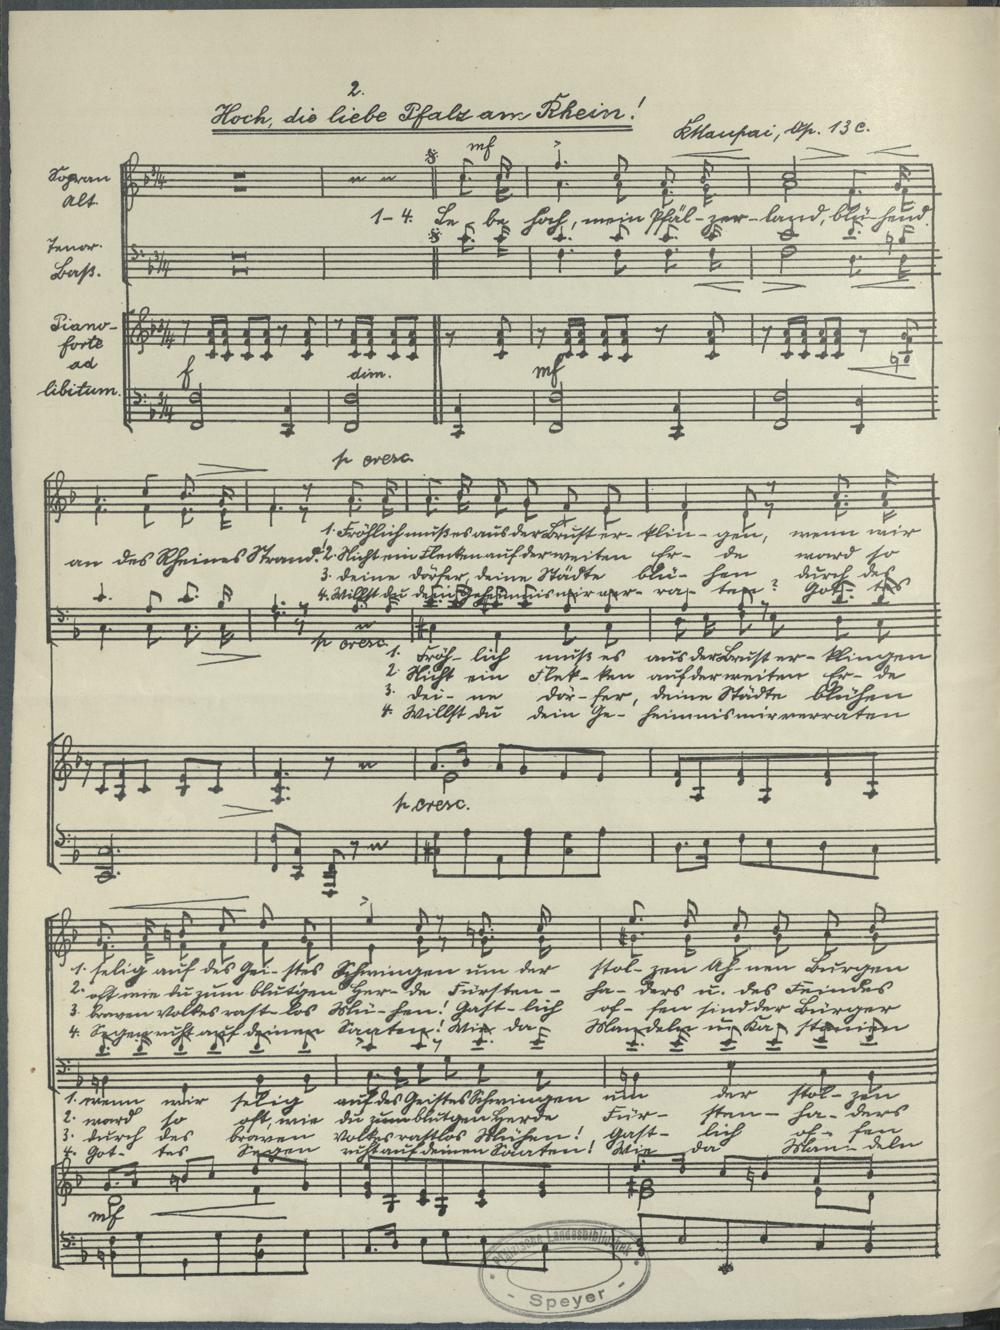 2.
Hoch, die liebe Pfalz am Rhein!
Op. 13 c.
mf
Sopran
Alt.
1-4. Le be hoch, mein Pfäl-zer-land, blü-hend
Tenor.
Baß.
Piano-
forte
ad
libitum.
f
dim.
mf
p cresc.
1. Fröhlich muß es aus der Brust er-klin-gen, wenn wir
an des Rheines Strand.
2. Nicht ein Flecken auf der weiten Er-de ward so
3. deine Dörfer, deine Städte blü-hen durch des
4. Willst du dein Geheimnis mir ver-ra-ten? Got-tes
p cresc.
1. Fröh-lich muß es aus der Brust er-klingen
2. Nicht ein Flek-ken auf der weiten Er-de
3. dei-ne Dör-fer, deine Städte blühen
4. Willst du dein Ge-heimnis mir verraten
p cresc.
1. selig auf des Gei-stes Schwingen um der stol-zen Ah-nen Burgen
2. oft wie du zum blut'gen Her-de Fürsten-ha-ders u. des Feindes
3. braven Volkes rast-los Mü-hen! Gast-lich of-fen sind der Bürger
4. Segen ruht auf deinen Saaten! Wie da Mandeln u. Ka stanien
1. wenn wir selig auf des Geistes Schwingen um der stol-zen
2. ward so oft, wie du zum blutgen Herde Für-sten-ha-ders
3. durch des braven Volkes rastlos Mühen! Gast-lich of-fen
4. Got-tes Segen ruht auf deinen Saaten! Wie da Man-deln
mf
Pfälzische Landesbibliothek
- Speyer -